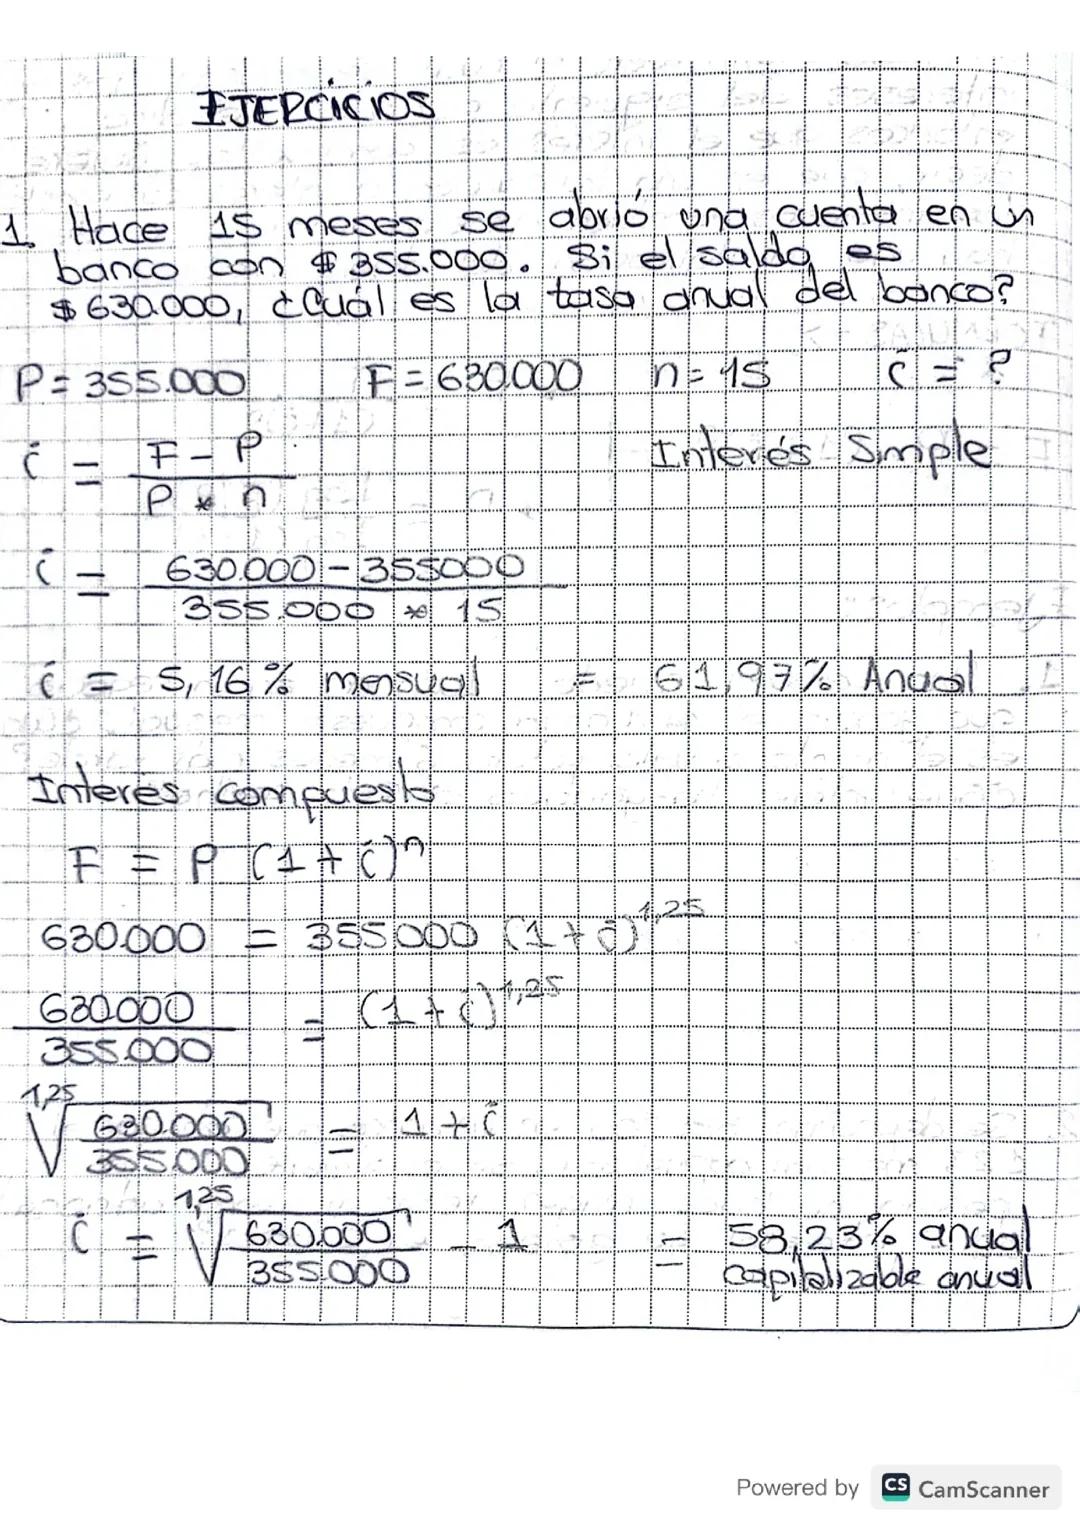 EJERCICIOS
1. Hace 15 meses se abrió una cuenta en un
banco con $ 355.000. Si el saldo es
$ 630.000, ¿Cuál es la tasa anual del banco?
P = 355.000 F = 630.000 n = 15 i = ?
i = F - P / P * n Interés Simple
i = 630.000 - 355000 / 355.000 * 15
i = 5,16 % mensual = 61,97% Anual
Interés compuesto
F = P (1 + i)^n
630.000 = 355.000 (1 + i)^1,25
630.000 / 355.000 = (1 + i)^1,25
1,25 √ 630.000 / 355.000 = 1 + i
i = 1,25 √ 630.000 / 355.000 - 1 = 58,23% anual
capitalizable anual
Powered by CS CamScanner